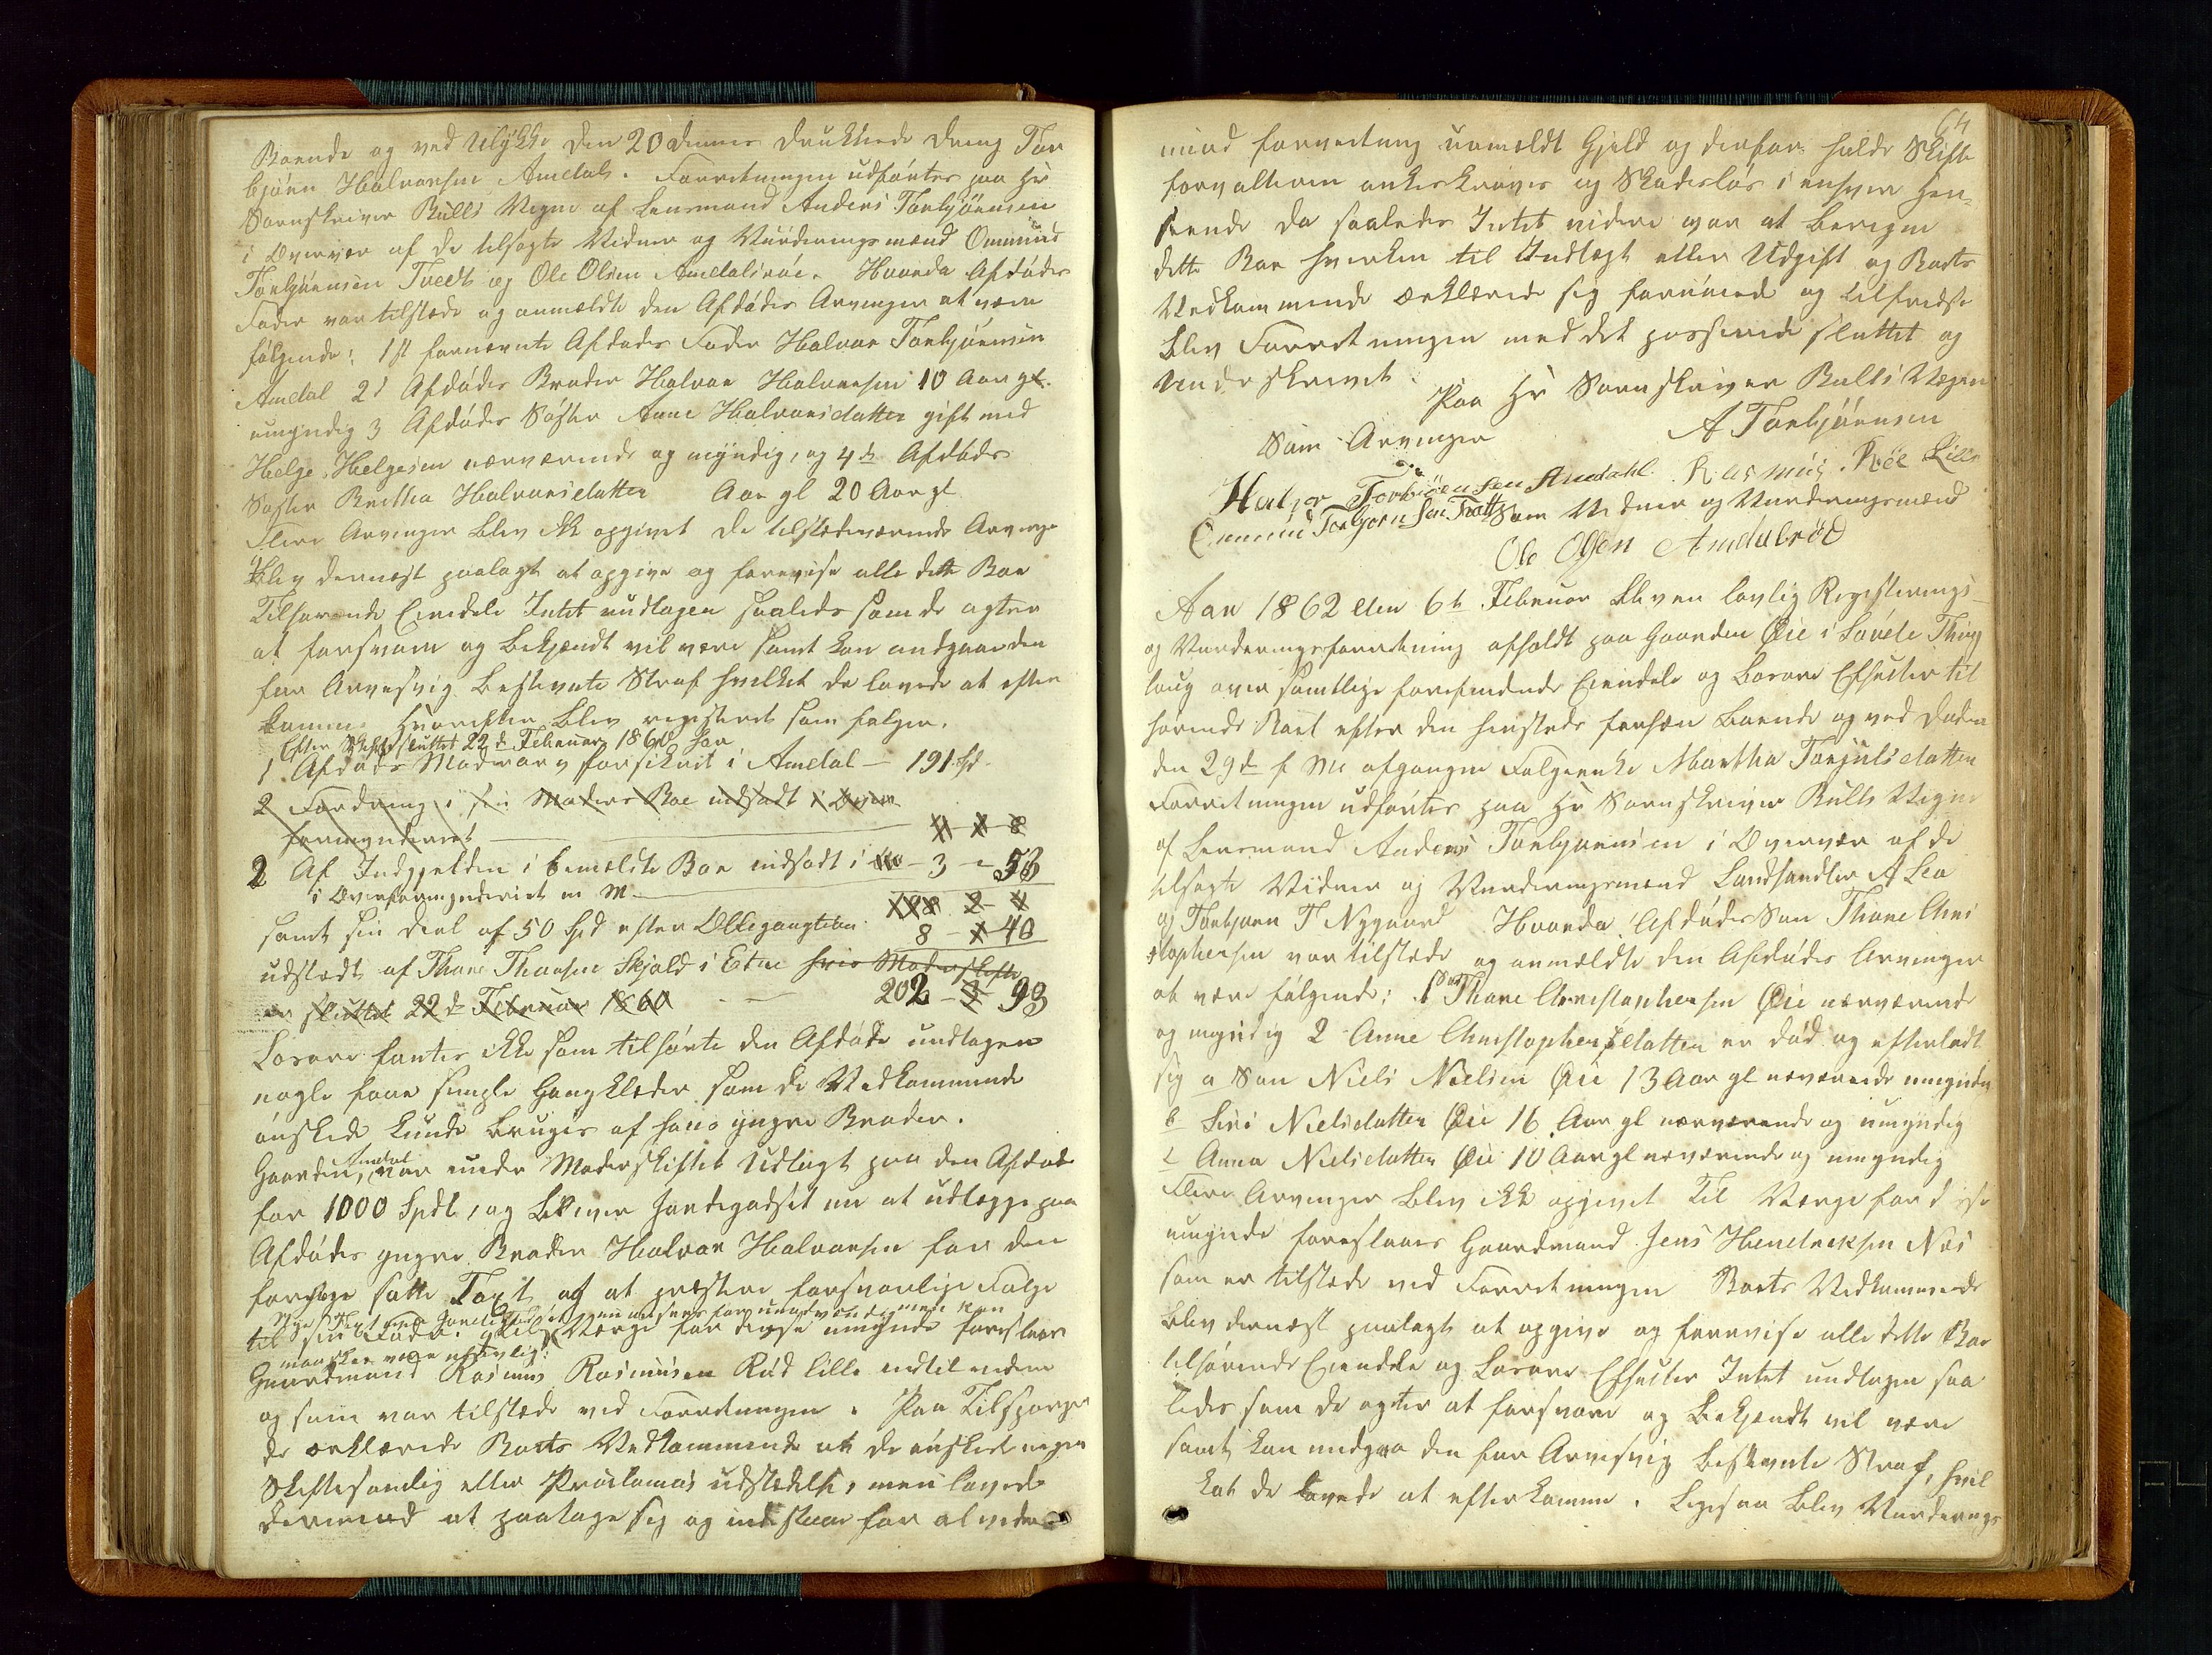 Boende og ved Ulykke den 20 dennes druknede Dreng Tor
bjørn Halvorsen Amdal. Forretningen udførtes paa Hr
Sorenskriver Bulls Vegne af Lensmand Anders Torbjørnsen
i Overvær af de tilsagte Vidner og Vurderingsmænd Ommund
Torbjørnsen Tvedt og Ole Olsen Amdalsrøe. Hvorda Afdødes
Fader var tilstede og anmældte den Afdødes Arvinger at være
følgende: 1st fornævnte Afdødes Fader Halvor Torbjørnsen
Amdal 2d Afdødes Broder Halvor Halvorsen 10 Aar gl.
umyndig 3 Afdødes Søster Anne Halvorsdatter gift med
Helge Helgesen nærværende og myndig, og 4de Afdødes
Søster Britha Halvorsdatter Aar gl 20 Aar gl
Flere Arvinger blev ikke opgivet de tilstedeværende Arvinge
blev dernæst paalagt at opgive og forevise alle dette Boe
Tilhørende Eiendele Intet undtagen saaledes som de agter
at forsvare og bekjendt vil være samt kan undgaa den
for Arvesvig bestemte Straf hvilket de lovede at efter
komme. Hvorefter blev registeret som følger.
Efter Skifte sluttet 22d Februar 1860 har
1 Afdøde Mødrearv forsikret i Amdal — 191 Spd.
2 Fordring i sin Moders Boe indsadt i Over
formynderiet
2 Af Indgjelden i bemeldte Boe indsadt i — 3 - 53
i Overformynderiet en M —
samt sin deel af 50 Spd efter Obligangtion
8 - 40
udstædt af Thore Thorsen Skjold i Etne hvis Moderskifte
er sluttet 22d Februar 1860 — 202 - 3 93
Løsøre fantes ikke som tilhørte den Afdøde undtagen
nogle faae simple Gangklæder som de Vedkommende
ønskede kunde bruges af hans yngre Broder.
Gaarden, Amdal var under Moderskiftet Udlagt paa den Afdøde
for 1000 Spdl, og bliver Jordegodset nu at udlægge paa
Afdødes yngre Broder Halvor Halvorsen for den
forhøge satte Taxt og at præstere forsvarlige Følge
til sin Fader. Til Værge for disse umynde foreslaar
Gaardmand Rasmus Rasmusen Rød lille
og som var tilstede ved Forretningen. Paa Tilspørge
de erklærede Boets Vedkommende at de ønskede ingen
Skiftesamling eller Proclamas udstædelse, men lovede
derimod at paatage sig og indestaae for al videre

64
mind forventning uomældt Gjeld og derfor holde Skifte
forvalteren ankeskrøves og Skadesløs i enhver Hen¬
seende da saaledes Intet videre var at beregne
dette Boe hverken til Indtægt eller Udgift og Boets
Vedkommende erklærede sig fornøiede og tilfredse
blev Forretningen med det passerede sluttet og
Underskrevet.
Paa Hr Sorenskriver Bulls Vegne
A Torbjørnsen
Som Arvinger
Halvor Torbiøensen Amdahl. Rasmus Røe Lille
Ommund Torbjørnsen Tvett Som Vidner og Vurderingsmænd
Ole Olsen Amdalsrød
Aar 1862 den 6te Februar blev en lovlig Registerings-
og Vurderingsforretning afholdt paa Gaarden Øie i Søvde Thing
laug over samtlige forefindende Eiendele og Løsøre Effecter til
hørende Boet efter den hensteds forhen boende og ved Døden
den 29de f. Md afgangne Følgeenke Martha Torjulsdatter
Forretningen udførtes paa Hr Sorenskriver Bulls Vegne
af Lensmand Anders Torbjørnsen i Overvær af de
tilsagte Vidner og Vurderingsmænd Landhandler A Lea
og Torbjørn T Nygaard Hvorda Afdødes Søn Thore Chri
stophersen var tilstede og anmældte den Afdødes Arvinger
at være følgende: 1st Thore Christophersen Øie nærværende
og myndig 2 Anne Christophersdatter er død og efterladt
sig a Søn Niels Nielsen Øie 13 Aar gl nærværende umyndig
b Siri Nielsdatter Øie 16 Aar gl nærværende og umyndig
c Anna Nielsdatter Øie 10 Aar gl nærværende og umyndig
Flere Arvinger blev ikke opgivet Til Værge for disse
umynde foreslaaes Gaardmand Jens Hendreksen Næs
som er tilstede ved Forretningen Boets Vedkommende
blev dernæst paalagt at opgive og forevise alle dette Boe
tilhørende Eiendele og Løsøre Effecter Intet undtagen saa
ledes som de agter at forsvare og bekjendt vil være
samt kan undgaa den for Arvesvig bestemte Straf, hvil
ket de lovede at efterkomme. Ligesaa blev Vurderings